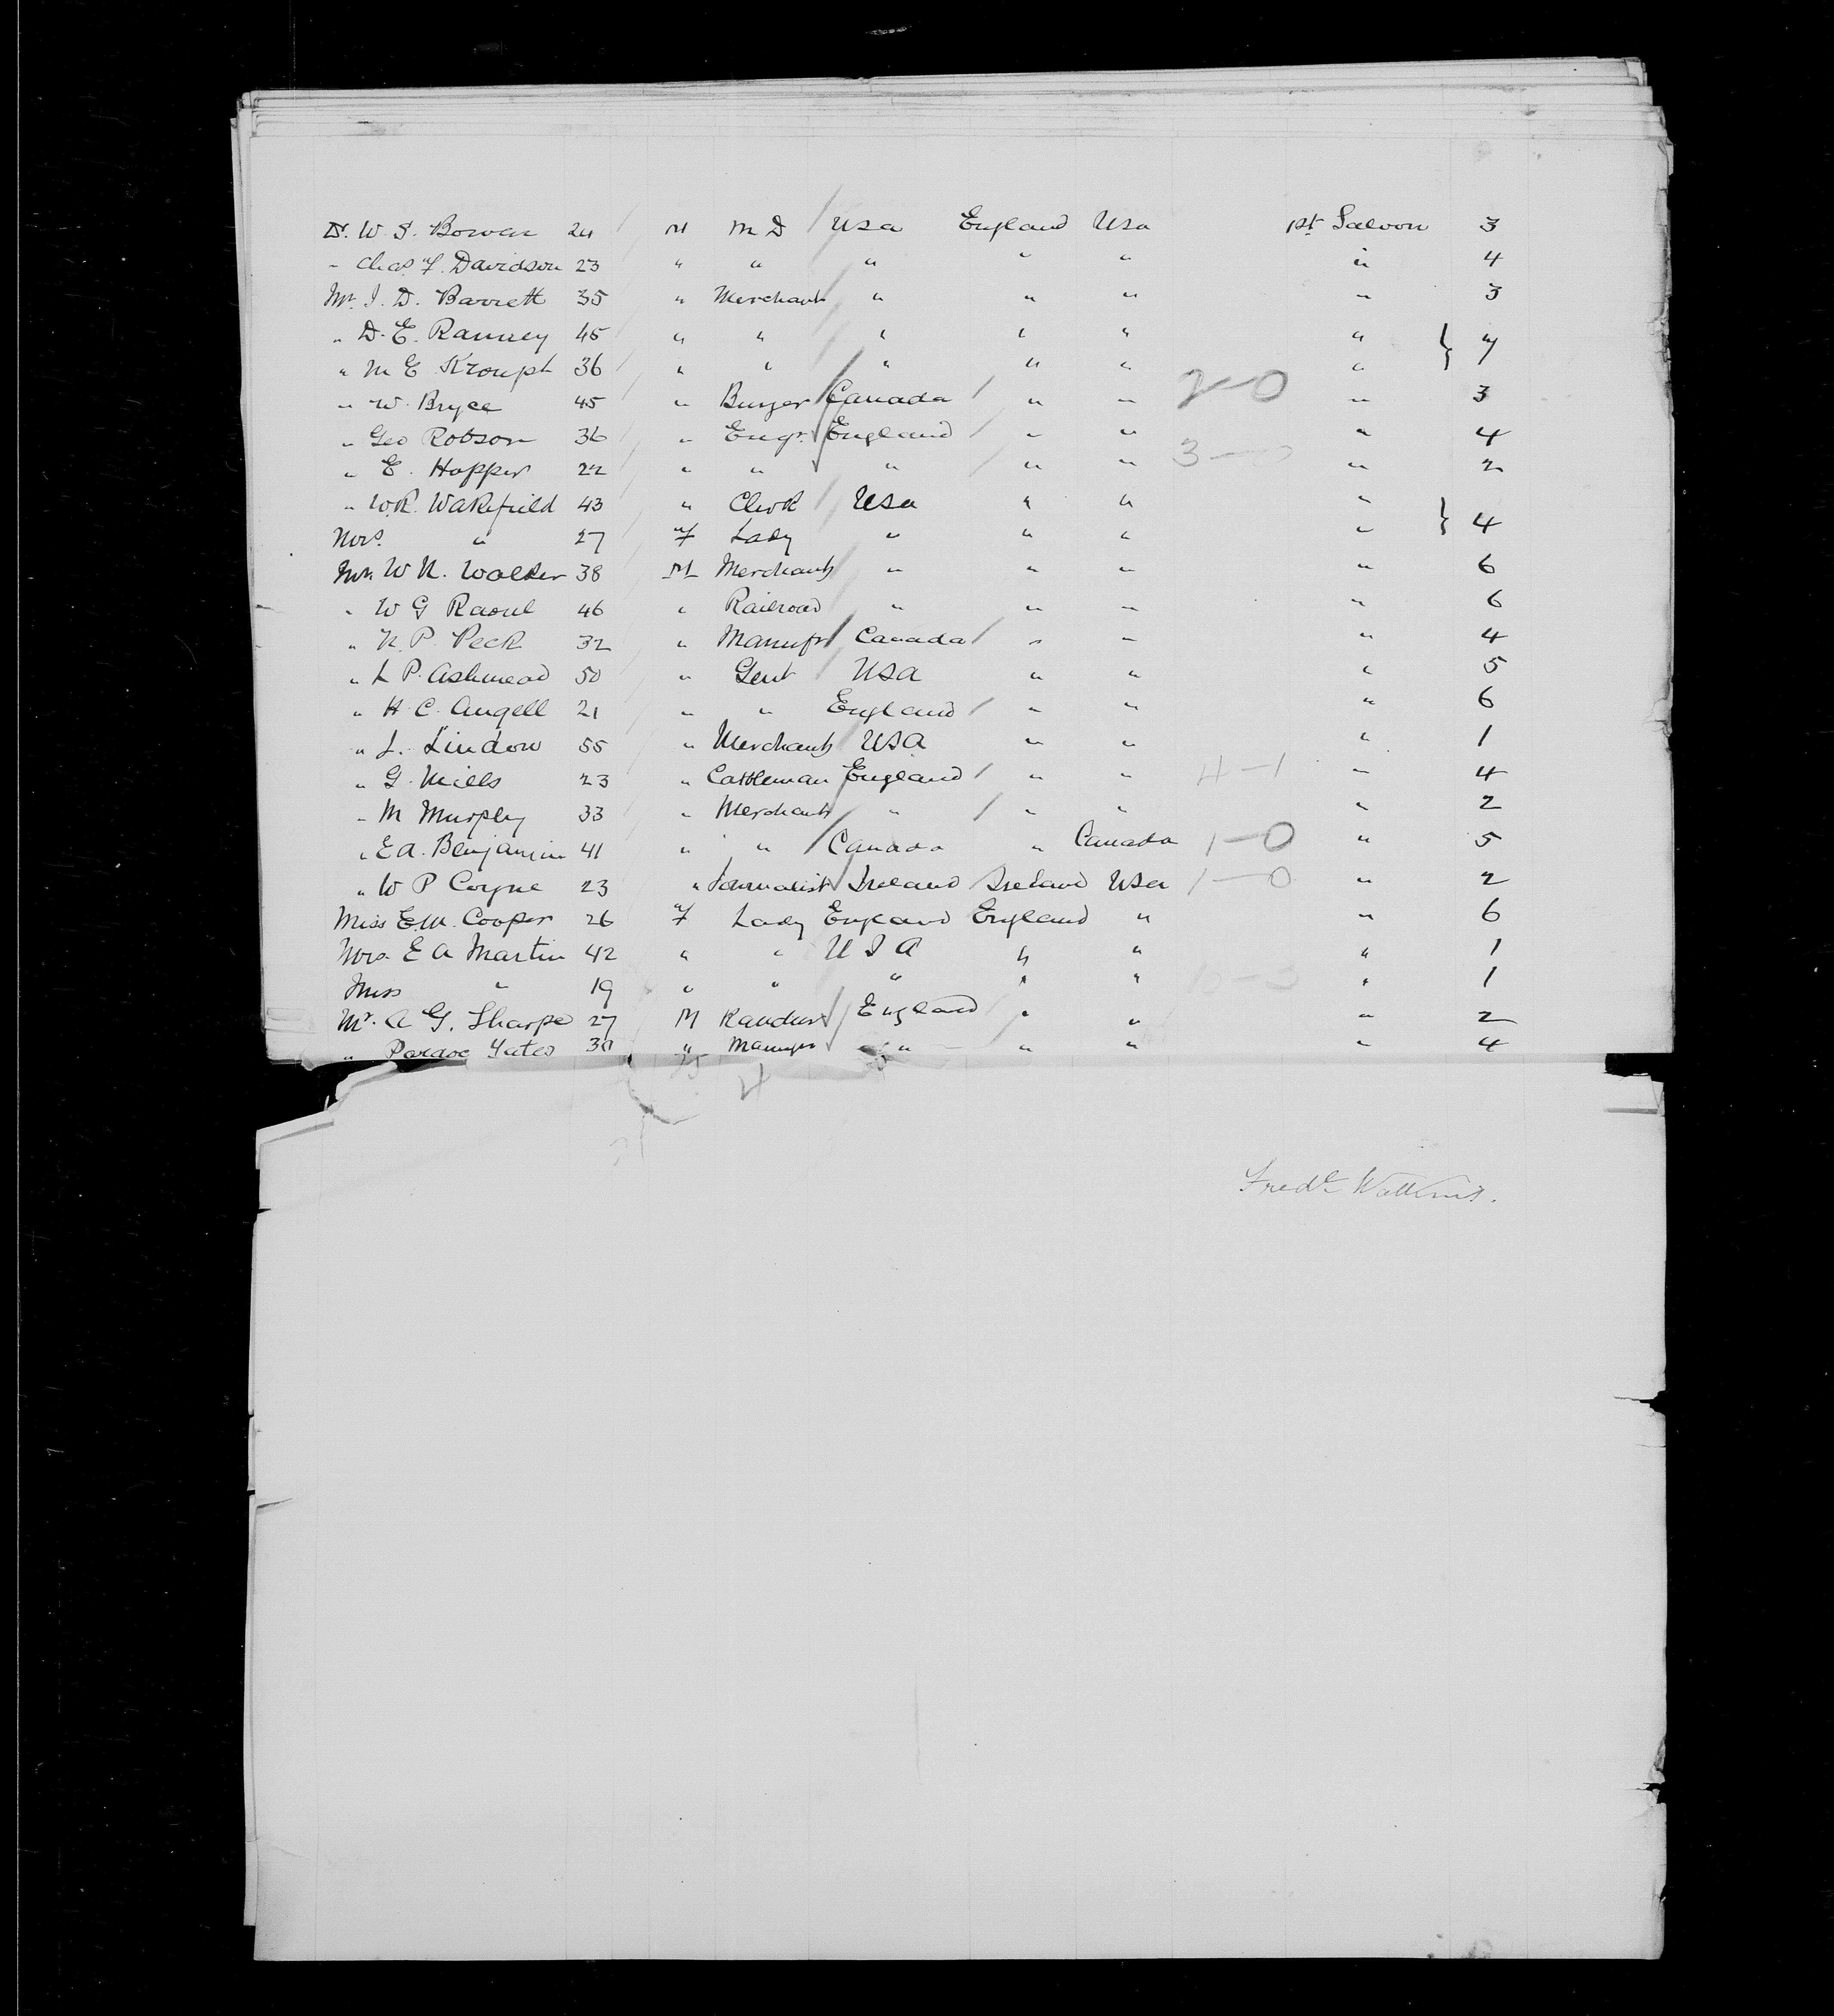 Dr. W. S. Bowen 24 M M D USA England USA 1st Saloon 3
" Chas. F. Davidson 23 " " " " " " 4
Mr. J. D. Barrett 35 " Merchant " " " " 3
" D. E. Ranney 45 " " " " " " } 7
" M E Kroupt 36 " " " " " "
" W. Bryce 45 " Buyer Canada " " 2-0 " 3
" Geo Robson 36 " Engr. England " " " 4
" E. Hopper 22 " " " " " 3-0 " 2
" W.R. Wakefield 43 " Clerk USA " " " } 4
Mrs. " 27 F Lady " " " "
Mr. W N. Walker 38 M Merchant " " " " 6
" W G Raoul 46 " Railroad " " " " 6
" N. P. Peck 32 " Manufr Canada " " " 4
" L P. Ashmead 50 " Gent USA " " " 5
" H. C. Angell 21 " " England " " " 6
" L. Lindow 55 " Merchant USA " " " 1
" G. Mills 23 " Cattleman England " " 4-1 " 4
" M Murphy 33 " Merchant " " " " 2
" E A. Benjamin 41 " " Canada " Canada 1-0 " 5
" W P Coyne 23 " Journalist Ireland Ireland USA 1-0 " 2
Miss E.M. Cooper 26 F Lady England England " " 6
Mrs. E A Martin 42 " " U S A " " " 1
Miss " 19 " " " " " 10-3 " 1
Mr. A G. Sharpe 27 M England " " " 2
" Yates 30 " Manager " " " " 4
25 4
Fredk Watkins.